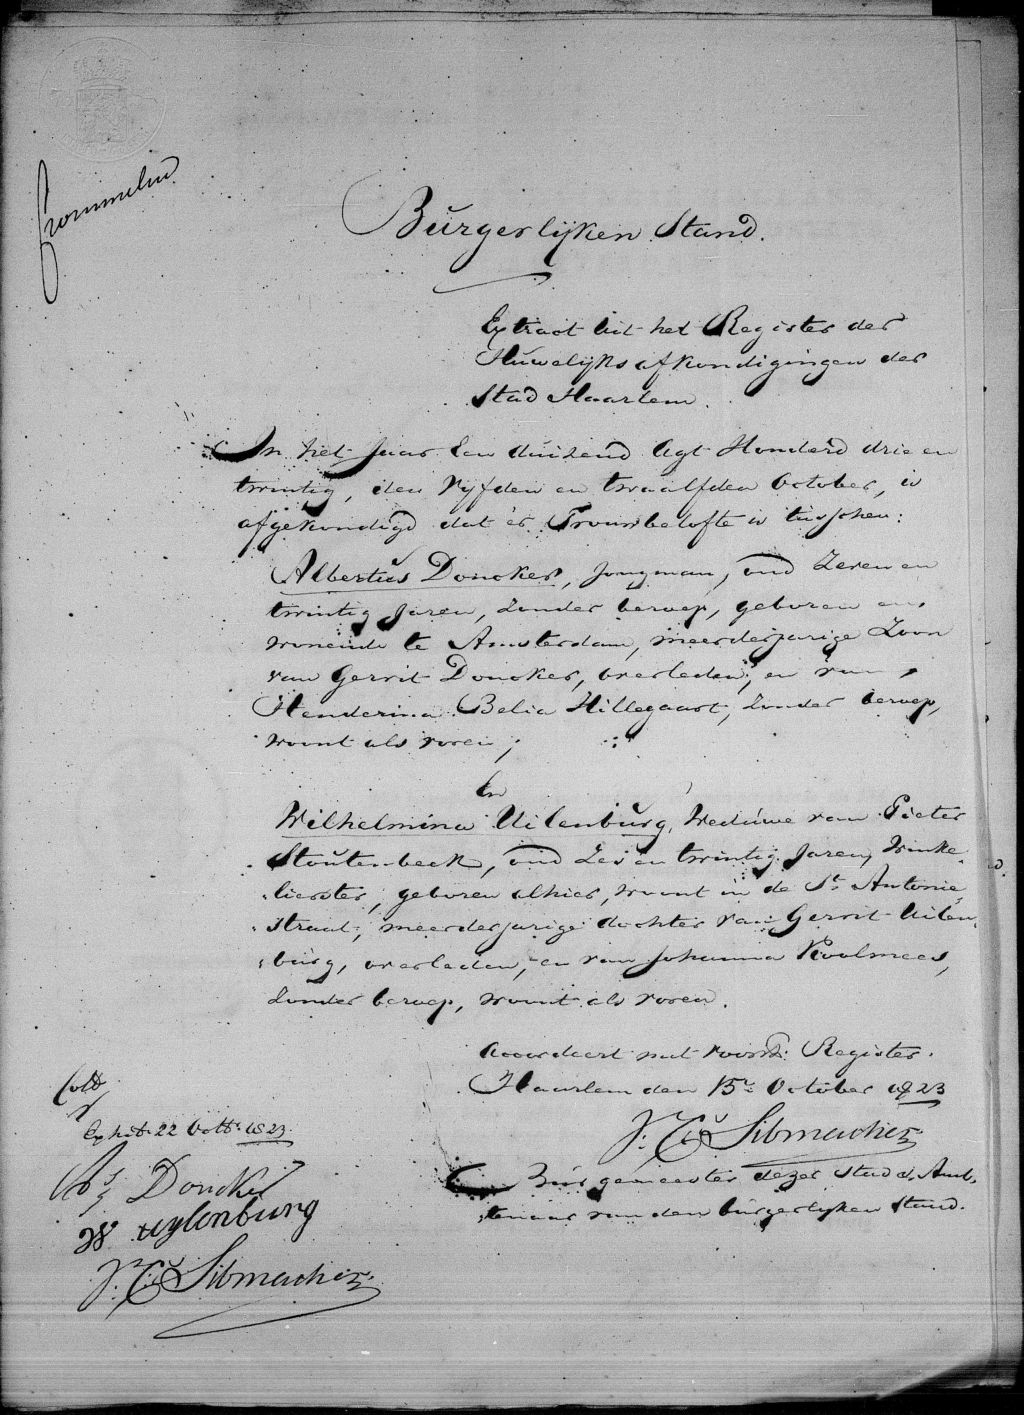 Crommelin
Burgerlijken Stand.
Extract uit het Register der
Huwelijks afkondigingen der
Stad Haarlem.
In het Jaar Een duizend Agt Honderd drie en
twintig, den Vijfden en twaalfden October, is
afgekondigd dat er Trouwbelofte is tusschen:
Albertus Doncker, Jongman, oud Zeven en
twintig Jaren, Zonder beroep, geboren en
wonende te Amsterdam, meerderjarige Zoon
van Gerrit Doncker, overleden, en van
Henderina Belia Hillegaart, Zonder beroep,
woont als voren;
En
Wilhelmina Uilenburg, Weduwe van Pieter
Stoutenbeek, oud Zes en twintig Jaren, Winke-
lierster, geboren alhier, woont in de St. Antonie
straat, meerderjarige dochter van Gerrit Uilen-
burg, overleden, en van Johanna Koolmees,
Zonder beroep, woont als voren.
Accordeert met voorsz: Register.
Haarlem den 15e October 1823
Sibmacher
Burgemeester dezer Stad & Amb-
tenaar van den burgerlijken Stand.
Exhib: 22 Octb: 1823.
Doncker
W uylenburg
Sibmacher